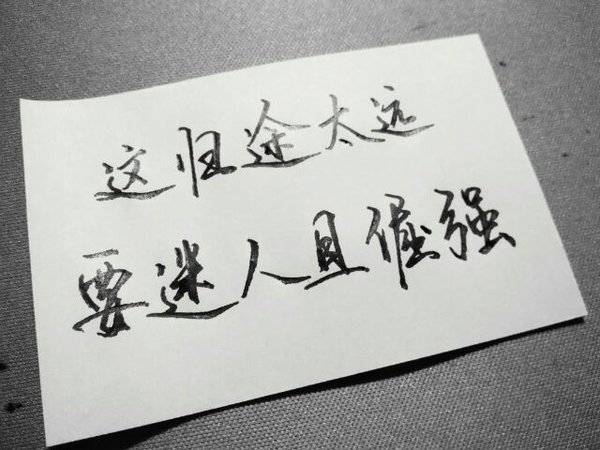 这归途太远
要迷人且倔强